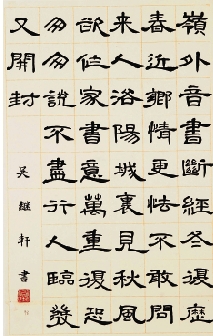 嶺外音書斷經冬復歷
春近鄉情更怯不敢問
来人洛陽城裏見秋風
欲作家書意萬重復恐
匆匆說不盡行人臨發
又開封
吴継軒書